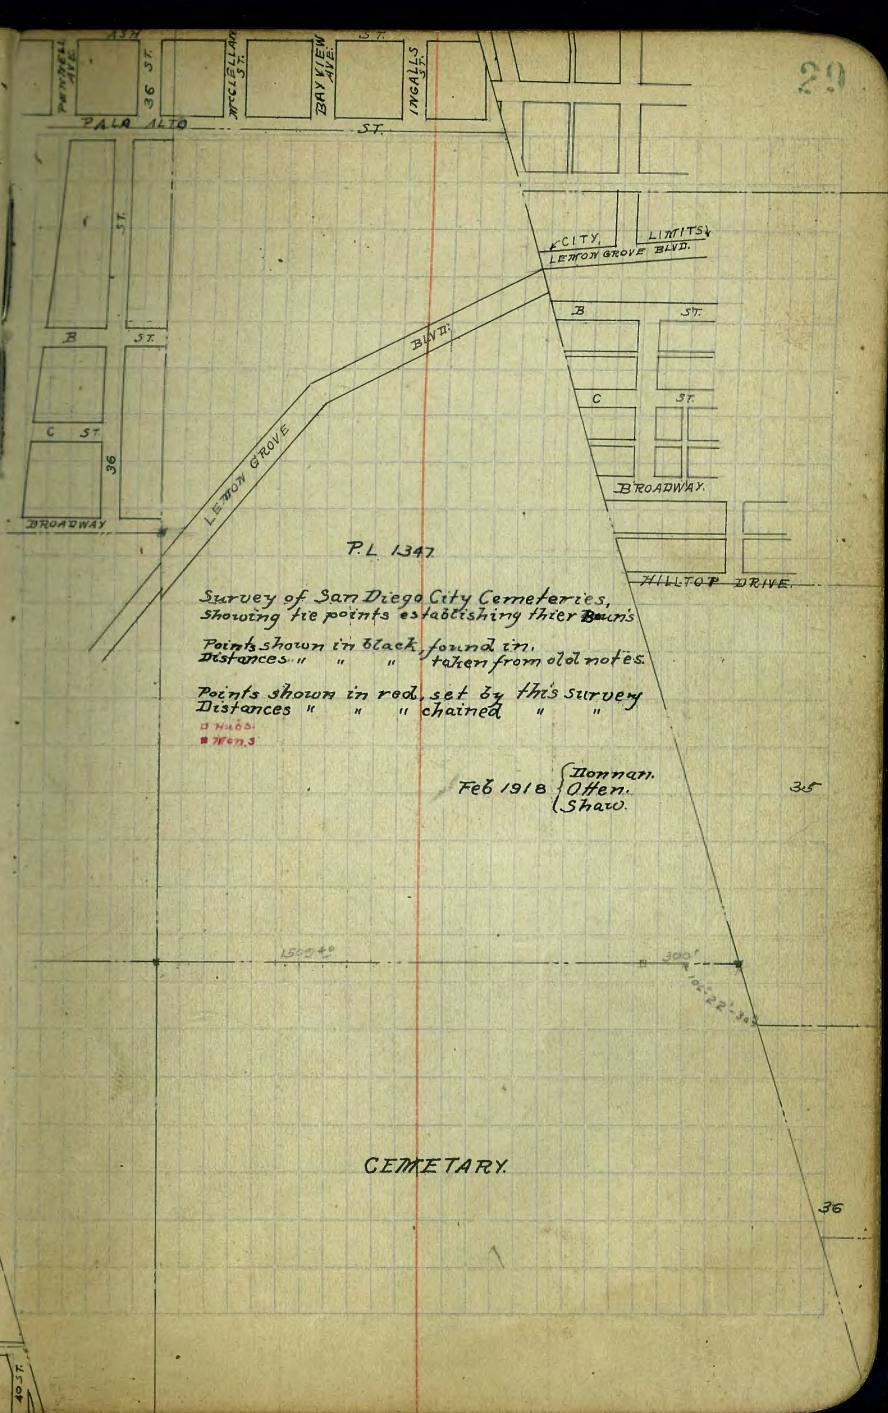 29
ASH ST.
PENNELL AVE.
36 ST.
McCLELLAN ST.
BAY VIEW AVE.
INGALLS ST.
PALO ALTO ST.
ST.
CITY LIMITS
LEMON GROVE BLVD.
B ST.
B ST.
BLVD.
C ST.
C ST.
36
LEMON GROVE
BROADWAY.
BROADWAY
P.L 1347
HILLTOP DRIVE.
Survey of San Diego City Cemeteries,
showing tie points establishing thier Boun's
Points shown in black, found in.
Distances " " " taken from old notes.
Points shown in red, set by this survey
Distances " " " chained " "
Hubs.
Mon.s
Feb 1918 { Donnan.
Offen.
Shaw.
35
300'
106°-22'-30"
CEMETARY.
36
40 ST.